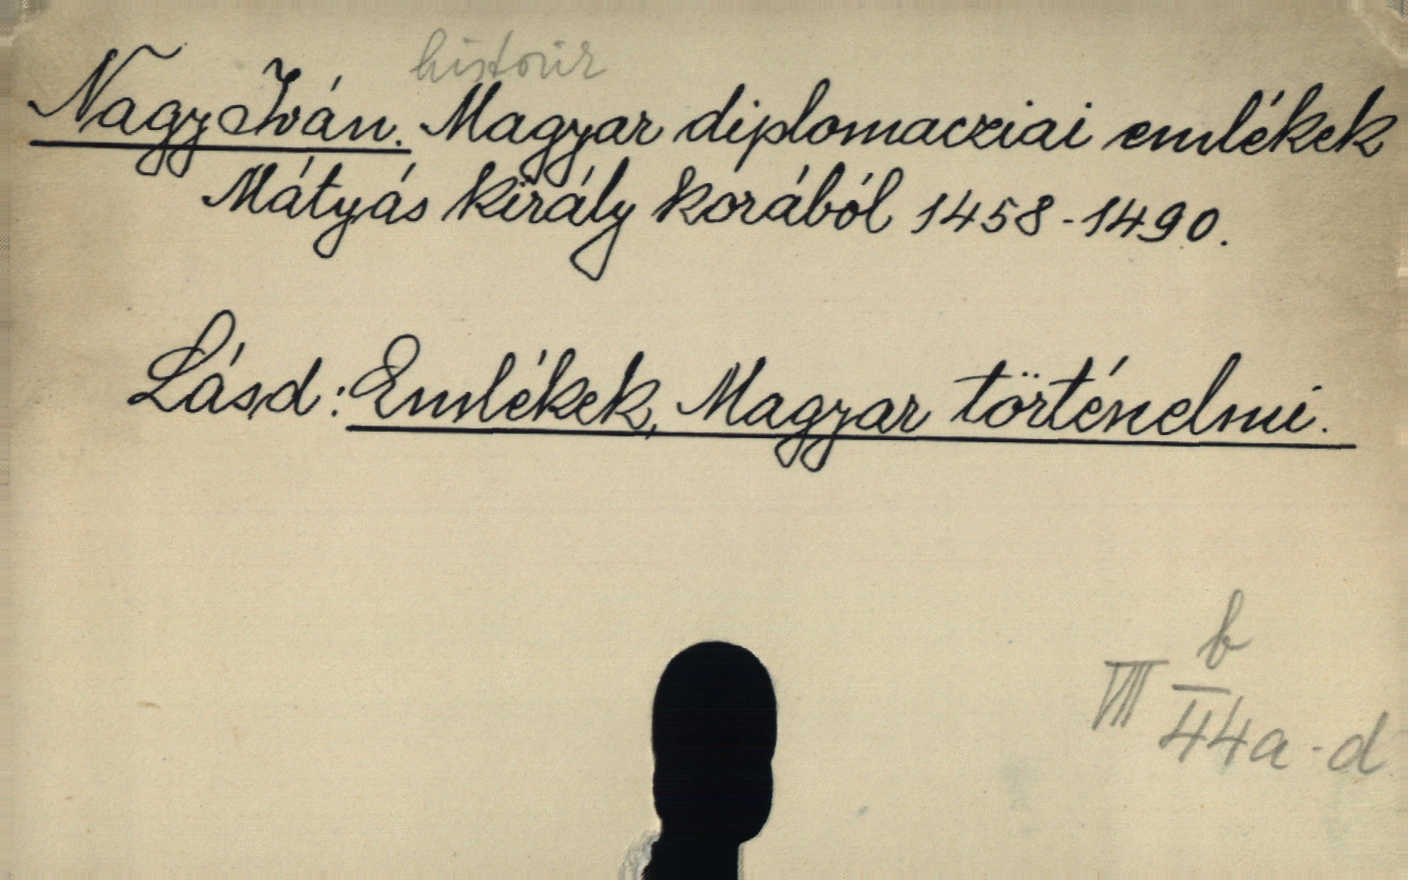 histoire
Nagy Iván. Magyar diplomacziai emlékek
Mátyás király korából 1458-1490.
Lásd: Emlékek, Magyar történelmi.
b
VIII 44a-d